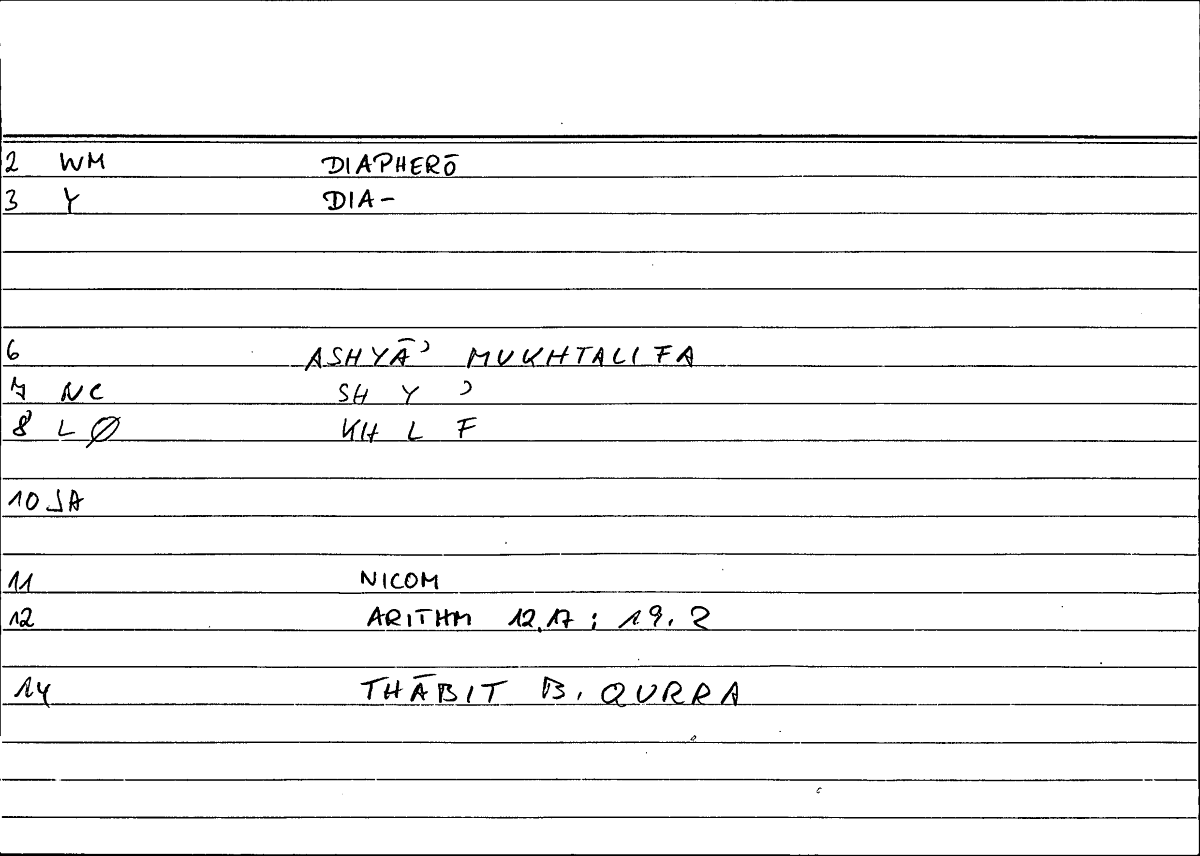 2 WM DIAPHERŌ
3 Y DIA-
6 ASHYĀʾ MUKHTALIFA
7 NC SH Y ʾ
8 L Ø KH L F
10 SA
11 NICOM
12 ARITHM 12.17 ; 19.2
14 THĀBIT B. QURRA